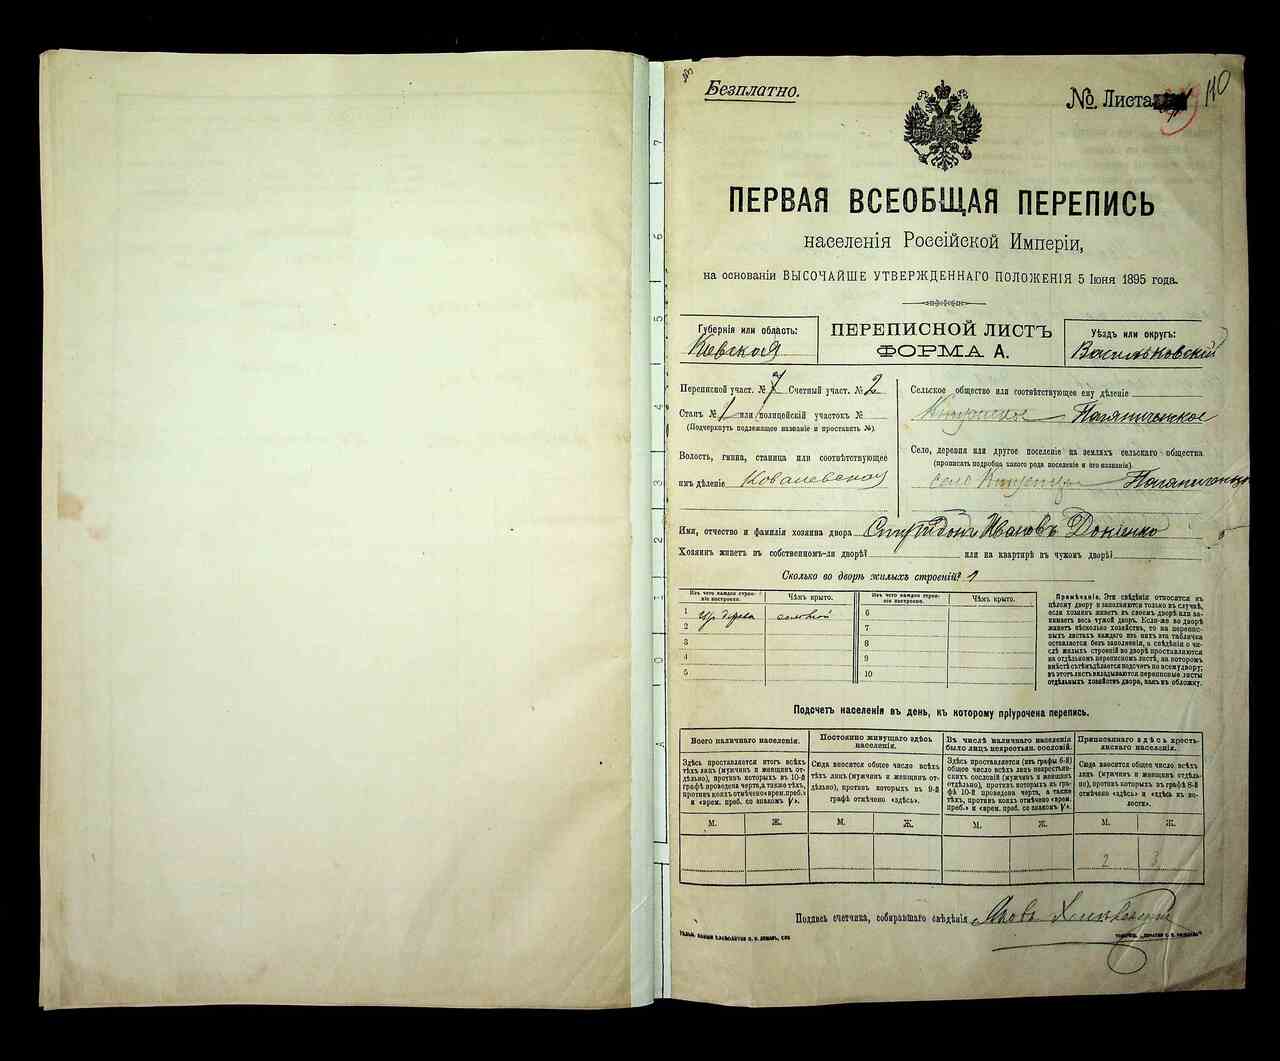 Безплатно.
№ Листа
110
ПЕРВАЯ ВСЕОБЩАЯ ПЕРЕПИСЬ
населенія Россійской Имперіи,
на основаніи ВЫСОЧАЙШЕ УТВЕРЖДЕННАГО ПОЛОЖЕНІЯ 5 Іюня 1895 года.
Губернія или область:
Кіевская
ПЕРЕПИСНОЙ ЛИСТЪ
ФОРМА А.
Уѣздъ или округъ:
Васильковскій
Переписной участ. № 7 Счетный участ. № 2
Станъ № 1 или полицейскій участокъ №
(Подчеркнуть подлежащее названіе и проставить №).
Волость, гмина, станица или соотвѣтствующее
имъ дѣленіе Ковалевская
Сельское общество или соотвѣтствующее ему дѣленіе
Село, деревня или другое поселеніе на земляхъ сельскаго общества
(прописать подробно какого рода поселеніе и его названіе).
село
Имя, отчество и фамилія хозяина двора Спиридонъ Ивановъ
Хозяинъ живетъ въ собственномъ-ли дворѣ? или на квартирѣ въ чужом дворѣ?
Сколько во дворѣ жилыхъ строеній? 1
Изъ чего каждое строеніе построено. Чѣмъ крыто.
Изъ чего каждое строеніе построено. Чѣмъ крыто.
1 Изъ дерева соломой 6
2 7
3 8
4 9
5 10
Примѣчаніе. Эти свѣдѣнія относятся къ
цѣлому двору и заполняются только въ случаѣ,
если хозяинъ живетъ въ своемъ дворѣ или за-
нимаетъ весь чужой дворъ. Если-же во дворѣ
живетъ нѣсколько хозяйствъ, то на перепис-
ныхъ листахъ каждаго изъ нихъ эта табличка
оставляется безъ заполненія, а свѣдѣнія о чи-
слѣ жилыхъ строеній во дворѣ проставляются
на отдѣльномъ переписномъ листѣ, на которомъ
вмѣстѣ съ тѣмъ дѣлается подсчетъ по всему двору;
въ этотъ листъ вкладываются переписные листы
отдѣльныхъ хозяйствъ двора, какъ въ обложку.
Подсчетъ населенія въ день, къ которому пріурочена перепись.
Всего наличнаго населенія.
Здѣсь проставляется итогъ всѣхъ
тѣхъ лицъ (мужчинъ и женщинъ от-
дѣльно), противъ которыхъ въ 10-й
графѣ проведена черта, а также тѣхъ,
противъ коихъ отмѣчено «врем. преб.»
и «врем. преб. со знакомъ V».
Постоянно живущаго здѣсь
населенія.
Сюда вносится общее число всѣхъ
тѣхъ лицъ (мужчинъ и женщинъ от-
дѣльно), противъ которыхъ въ 9-й
графѣ отмѣчено «здѣсь».
Въ числѣ наличнаго населенія
было лицъ некрестьян. сословій.
Здѣсь проставляется (изъ графы 6-й)
общее число всѣхъ лицъ некрестьян-
скихъ сословій (мужчинъ и женщинъ
отдѣльно), противъ которыхъ въ гра-
фѣ 10-й проведена черта, а также
тѣхъ, противъ коихъ отмѣчено «врем.
преб.» и «врем. преб. со знакомъ V».
Приписаннаго здѣсь кресть-
янскаго населенія.
Сюда вносится общее число всѣхъ
лицъ (мужчинъ и женщинъ отдѣль-
но), противъ которыхъ въ графѣ 8-й
отмѣчено «здѣсь» и «здѣсь къ во-
лости».
М. Ж. М. Ж. М. Ж. М. Ж.
2 3
Подпись счетчика, собиравшаго свѣдѣнія Яковъ